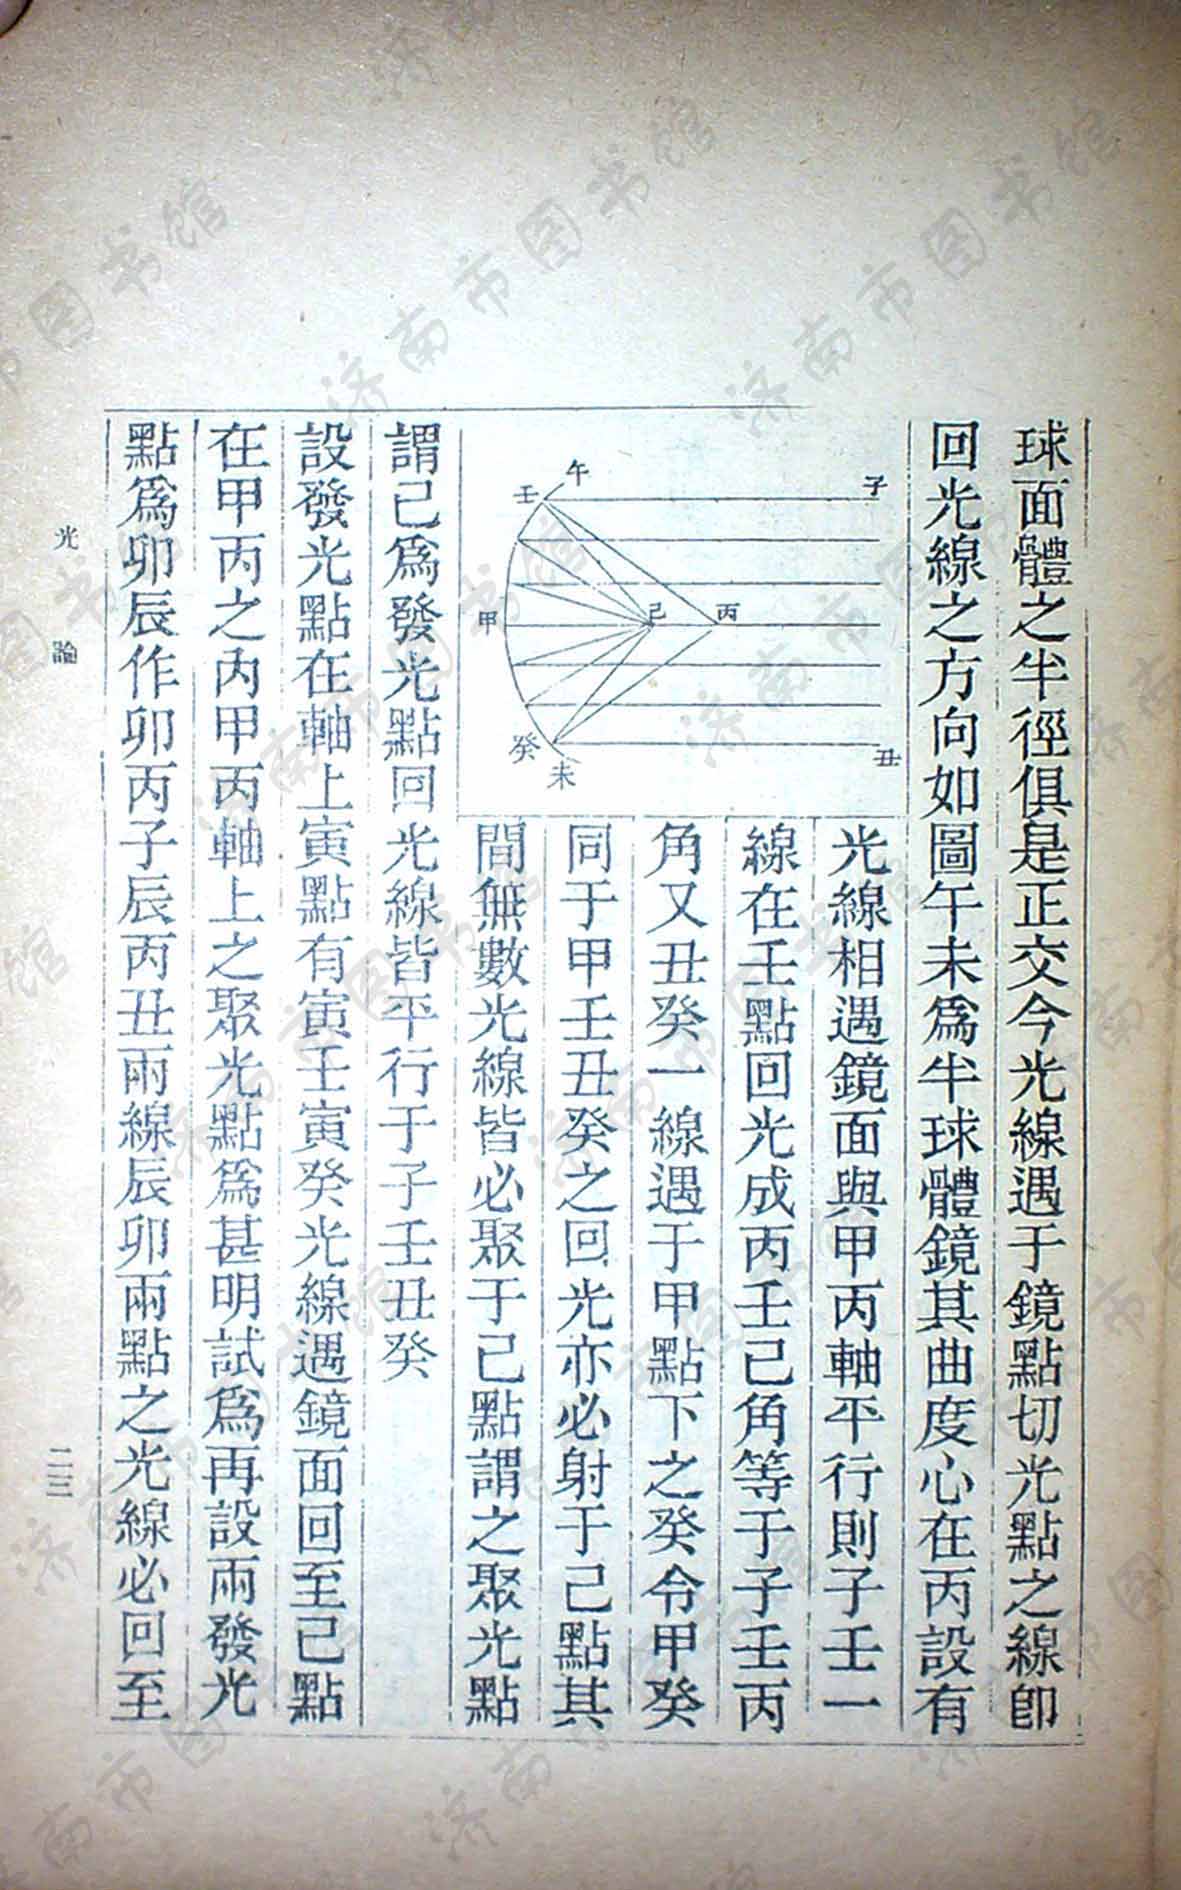 球面體之半徑俱是正交今光線遇于鏡點切光點之線卽
回光線之方向如圖午未爲半球體鏡其曲度心在丙設有
午
壬
子
甲
己
丙
癸
未
丑
光線相遇鏡面與甲丙軸平行則子壬一
線在壬點回光成丙壬己角等于子壬丙
角又丑癸一線遇于甲點下之癸令甲癸
同于甲壬丑癸之回光亦必射于己點其
間無數光線皆必聚于己點謂之聚光點
謂己爲發光點回光線皆平行于子壬丑癸
設發光點在軸上寅點有寅壬寅癸光線遇鏡面回至己點
在甲丙之內甲丙軸上之聚光點爲甚明試爲再設兩發光
點爲卯辰作卯丙子辰丙丑兩線辰卯兩點之光線必回至
光論
二三
济南市图书馆